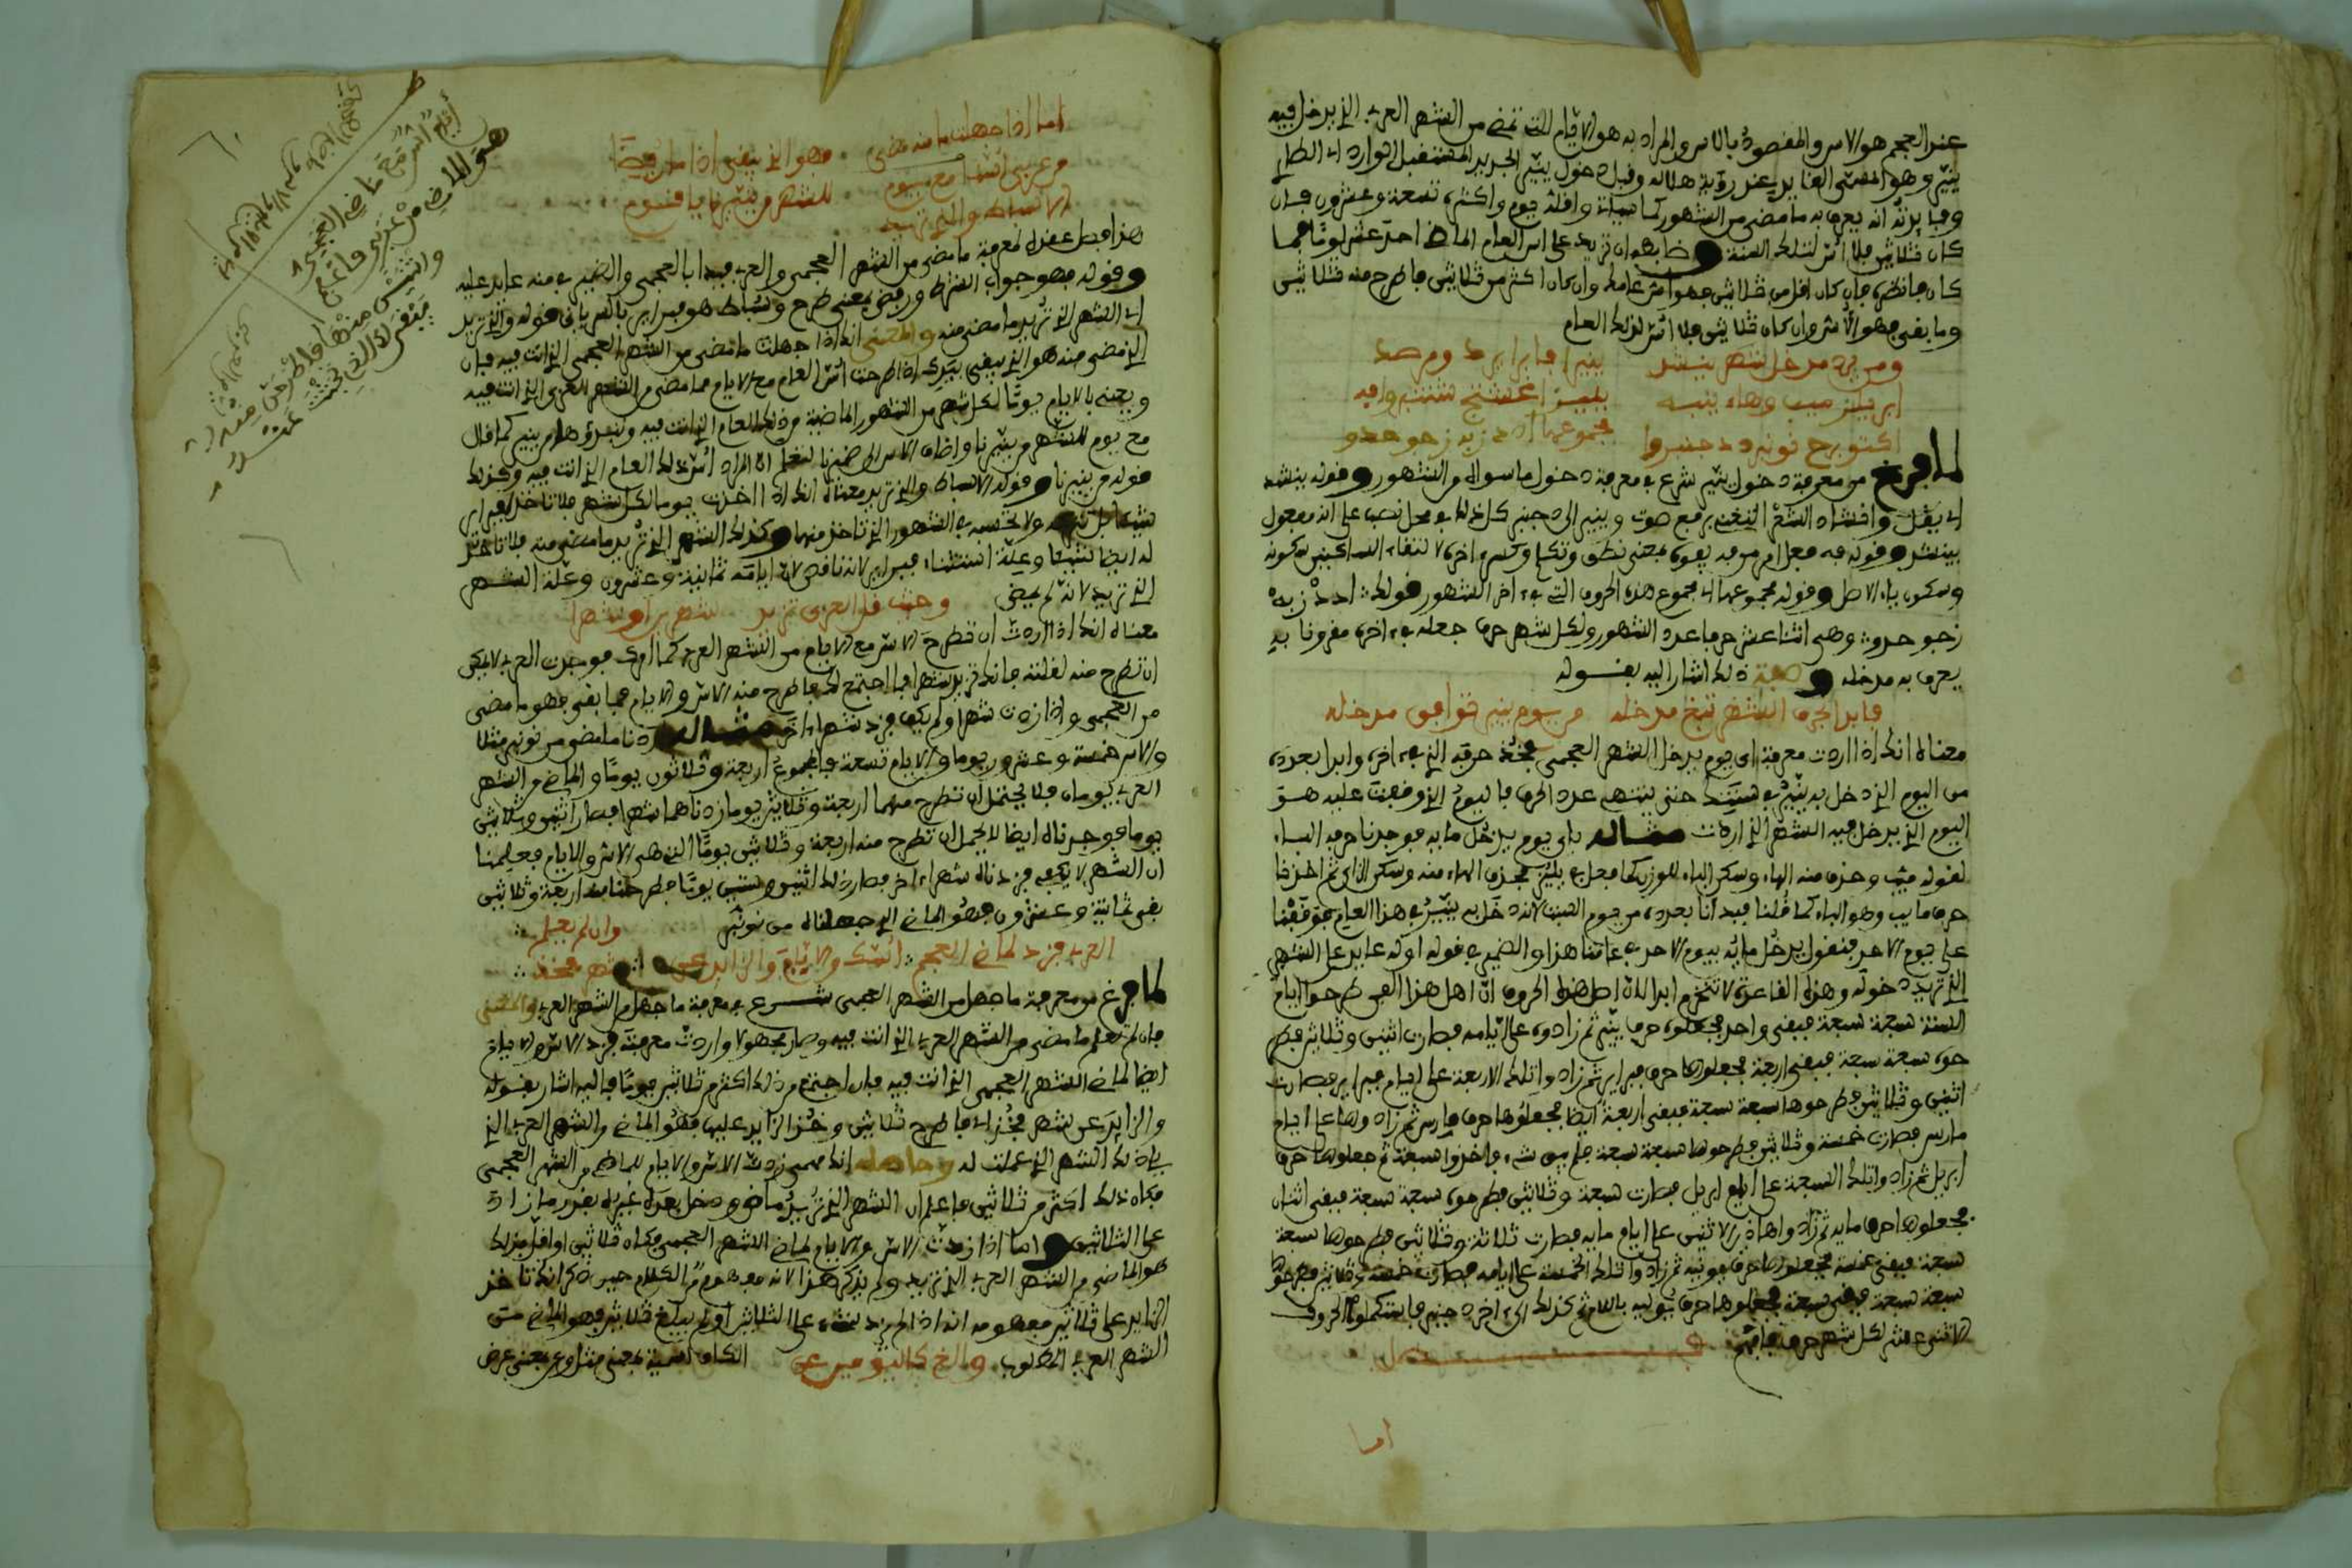 عند العجم هو الاس والمقصود بالاس والمراد به هو الايام التي تمضي من الشهر العربي الذي يدخل فيه
ينير وهو المسمى الغابر عند رؤية هلاله وقبل دخول ينير الجديد المستقبل الوارد اي الطالع
وفايدته انه يعرف به ما مضى من الشهور كما سياتي واقله يوم واكثره تسعة وعشرون فان
كان ثلاثين فلا اس لتلك السنة وضابطه ان تزيد على اس العام الماضي احد عشر يوما فما
كان فانظره فان كان اقل من ثلاثين فهو اس عامك وان كان اكثر من ثلاثين فاطرح منه ثلاثين
وما بقي فهو الاس وان كان ثلاثين فلا اس لذلك العام
ومن يرد مدخل شهر ينشد ينير ا فبراير د ومرصد
ابريلز ميب وهاء ينيه يليز اغشتج شتنبر وافيه
اكتوبرح نونبرد دجنبروا مجموعها ادد زبه زجو حدو
لما فرغ من معرفة دخول ينير شرع في معرفة دخول ما سواه من الشهور وقوله ينشد
اي يقل وانشاد الشعر التغني برفع صوت وينير الى دجنبر كل ذلك في محل نصب على انه مفعول
بينشد وقوله فه فعل امر من فه يفوه بمعنى نطق وتكلم وكسر اخره لالتقاء الساكنين سكونه
وسكون ياء الاصل وقوله مجموعها اي مجموع هذه الحروف التي في اخر الشهور قولك ادد زبه
زجو حدو وهي اثنا عشر حرفا عدد الشهور ولكل شهر حرف جعله في اخره مقرونا به
يعرف به مدخله وصفة ذلك اشار اليه بقوله
فابدا لحرف الشهر تبغ مدخله من يوم ينير توافق مدخله
معناه انك اذا اردت معرفة اي يوم يدخل الشهر العجمي فخذ حرفه الذي في اخره وابدا بعدده
من اليوم الذي دخل به ينير في سنتك حتى ينتهي عدد الحرف فاليوم الذي وقفت عليه هو
اليوم الذي يدخل فيه الشهر الذي اردت مثاله باي يوم يدخل مايه فوجدنا حرفه الباء
لقوله ميب وحذف منه الهاء وسكن الباء للوزن كما فعل في يليز فحذف الهاء منه وسكن الزاي ثم اخذنا
حرف مايه وهو الباء كما قلنا فبدانا بعدده من يوم السبت لانه دخل به ينير في هذا العام فوقفنا
على يوم الاحد فنقول يدخل مايه بيوم الاحد في عامنا هذا والضمير في قوله اوله عايد على الشهر
الذي تريد دخوله وهذه القاعدة لا تنخرم ابدا لان اصل هذه الحروف ان اهل هذا الفن طرحوا ايام
السنة سبعة سبعة فبقي واحد فجعلوه حرف ينير ثم زادوه على ايامه فصارت اثنين وثلاثين فطر
حوه سبعة سبعة فبقي اربعة فجعلوها حرف فبراير ثم زادوا تلك الاربعة على ايام فبراير فصارت
اثنين وثلاثين فطرحوها سبعة سبعة فبقي اربعة ايضا فجعلوها حرف مارس ثم زادوها على ايام
مارس فصارت خمسة وثلاثين فطرحوها سبعة سبعة فلم يبق شيء فاخذوا سبعة فجعلوها حرف
ابريل ثم زادوا تلك السبعة على ايام ابريل فصارت سبعة وثلاثين فطرحوه سبعة سبعة فبقي اثنان
فجعلوها حرف مايه ثم زادوا هاذين الاثنين على ايام مايه فصارت ثلاثة وثلاثين فطرحوها سبعة
سبعة فبقي خمسة فجعلوها حرف يونيه ثم زادوا تلك الخمسة على ايامه فصارت خمسة وثلاثين فطرحو
سبعة سبعة فبقي سبعة فجعلوها حرف يوليه باللام ثم كذلك الى اخر دجنبر فاستكملوا الحروف
الاثني عشر لكل شهر حرف فافهم
فصل
اما
اما اذا جهلت ما منه مضى فهو الذي يبقى اذا ما رفضا
من عربي اسنا مع يوم للشهر من ينير نا يا قوم
الا شباط والذي تريده
هذا فصل عقده لمعرفة ما مضى من الشهر العجمي والعربي فبدا بالعجمي والضمير في منه عايد عليه
وقوله فهو جواب الشرط ورفض بمعنى طرح وشباط هو فبراير ياتي بيانه في قوله والذي تريد
اي الشهر الذي تريد ما مضى منه والمعنى انك اذا جهلت ما مضى من الشهر العجمي الذي انت فيه فان
الذي مضى منه هو الذي يبقى بيدك اذا طرحت اس العام مع الايام مما مضى من الشهر العربي الذي انت فيه
ويعني بالايام يوما لكل شهر من الشهور الماضية من ذلك العام الذي انت فيه وتبدؤها من ينير كما قال
مع يوم للشهر من ينير نا واضاف الاس الى ضميرنا لتعلم ان المراد اس ذلك العام الذي انت فيه وكذلك
قوله من ينير نا وقوله الا شباط والذي تريد معناه انك اذا اخذت يوما لكل شهر فلا تاخذ لفبراير
شيئا ولا تحسبه في الشهور الذي تاخذ منها وكذلك الشهر الذي تريد ما مضى منه فلا تاخذ
له ايضا شيئا وعلة استثناء فبراير لانه ناقص لان ايامه ثمانية وعشرون وعلة الشهر
الذي تريد لانه لم يمض وحيث قل العربي تزيد شهر او شهرا
معناه انك اذا اردت ان تطرح الاس مع الايام من الشهر العربي كما امرك فوجدت العربي لا يمكن
ان تطرح منه لقلته فانك تزيد شهرا فما اجتمع لك فاطرح منه الاس والايام فما بقي فهو ما مضى
من العجمي واذا زدت شهرا ولم يكف فزد شهرا اخر مثاله اردنا ما مضى من نونبر مثلا
والاس خمسة وعشرون يوما والايام تسعة فالمجموع اربعة وثلاثون يوما والماضي من الشهر
العربي يومان فلا يحتمل ان تطرح منهما اربعة وثلاثين يوما زدناهما شهرا فصار اثنين وثلاثين
يوما فوجدناه ايضا لا يحمل ان تطرح منه اربعة وثلاثين يوما التي هي الاس والايام فعلمنا
ان الشهر لا يكفي فزدناه شهرا اخر فصار ذلك اثنين وستين يوما فطرحنا منه اربعة وثلاثين
بقي ثمانية وعشرون فهو الماضي الذي جهلناه من نونبر وان لم يعلم
العربي فزد لماضي العجم اسك والايام والزايد عن شهر فخذ
لما فرغ من معرفة ما جهل من الشهر العجمي شرع في معرفة ما جهل من الشهر العربي والمعنى
فان لم تعلم ما مضى من الشهر العربي الذي انت فيه وصار مجهولا واردت معرفته فزد الاس والايام
ايضا لماضي الشهر العجمي الذي انت فيه فان اجتمع من ذلك اكثر من ثلاثين يوما فاليه اشار بقوله
والزايد عن شهر فخذ اي فاطرح ثلاثين وخذ الزايد عليها فهو الماضي من الشهر العربي الذي
يلي ذلك الشهر الذي عملت له وحاصله انك مهما زدت الاس والايام للماضي من الشهر العجمي
فكان ذلك اكثر من ثلاثين فاعلم ان الشهر الذي تريد ماض ودخل بعده غيره بقدر ما زاد
على الثلاثين واما اذا زدت الاس والايام لماضي الشهر العجمي فكان ثلاثين او اقل فذلك
هو الماضي من الشهر العربي الذي تريد ولم يذكر هذا لانه مفهوم من الكلام حين ذكر انك تاخذ
الزايد على ثلاثين مفهومه انه اذا لم يزد شيء على الثلاثين او لم يبلغ ثلاثين فهو الماضي من
الشهر العربي المطلوب والغ كاليو مير عن الكاف اسمية بمعنى مثل وعن بمعنى عرض